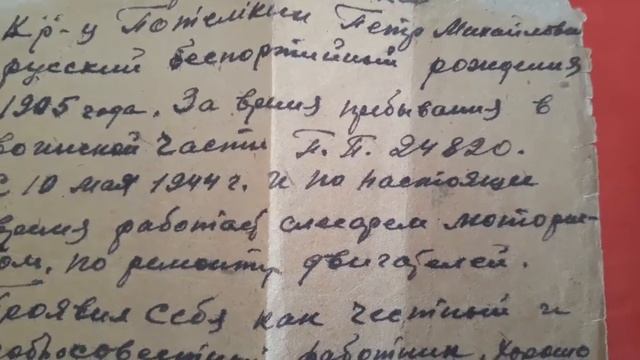 Кр-ц Потёмкин Пётр Михайлович
русский беспартийный рождения
1905 года. За время пребывания в
воинской части П.П. 24820.
с 10 мая 1944 г. и по настоящие
время работает слесарем мотори-
ом, по ремонту двигателей.
Проявил себя как честный и
добросовестный работник хорошо